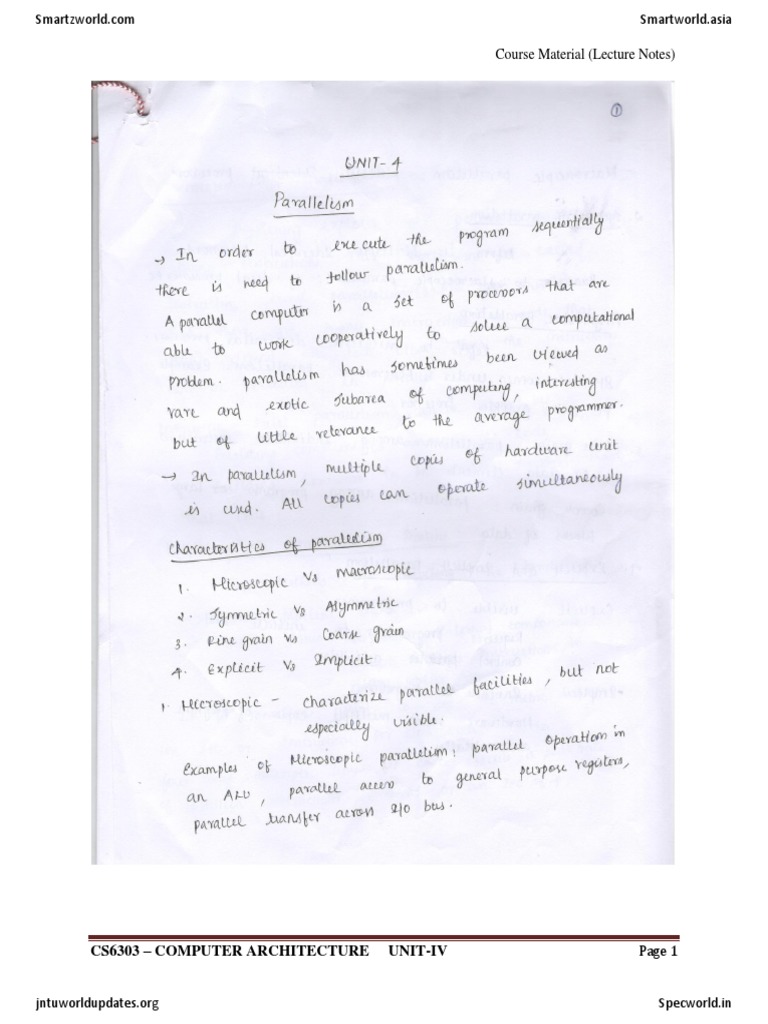 Smartzworld.com Smartworld.asia
Course Material (Lecture Notes)
1
UNIT-4
Parallelism
→ In order to execute the program sequentially
there is need to follow parallelism.
A parallel computer is a set of processors that are
able to work cooperatively to solve a computational
problem. parallelism has sometimes been viewed as
rare and exotic subarea of computing, interesting
but of little relevance to the average programmer.
→ In parallelism, multiple copies of hardware unit
is used. All copies can operate simultaneously
Characteristics of paralelism
1. Microscopic Vs macroscopic
2. Symmetric vs Asymmetric
3. Fine grain vs Coarse grain
4. Explicit Vs Implicit
1. Microscopic - characterize parallel facilities, but not
especially visible.
Examples of Microscopic parallelism: parallel operation in
an ALU, parallel access to general purpose registers,
parallel transfer across I/O bus.
CS6303 – COMPUTER ARCHITECTURE UNIT-IV Page 1
jntuworldupdates.org Specworld.in